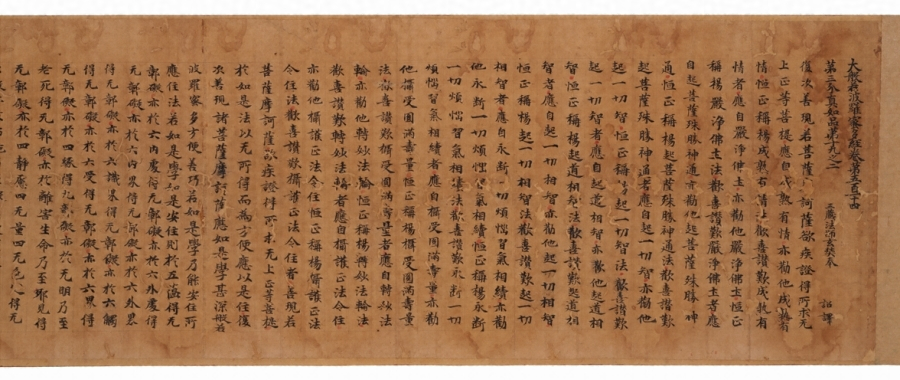 大般若波羅蜜多經卷第五百一十四
第三分真如品第十九之二 三藏法師玄奘奉 詔譯
復次善現若菩薩摩訶薩欲疾證得所求无
上正等菩提應自成熟有情亦勸他成熟有
情恒正稱揚成熟有情法歡喜讚歎成熟有
情者應自嚴淨佛土亦勸他嚴淨佛土恒正
稱揚嚴淨佛土法歡喜讚歎嚴淨佛土者應
自起菩薩殊勝神通亦勸他起菩薩殊勝神
通恒正稱揚起菩薩殊勝神通法歡喜讚歎
起菩薩殊勝神通者應自起一切智亦勸他
起一切智恒正稱揚起一切智法歡喜讚歎
起一切智者應自起道相智亦勸他起道相
智恒正稱揚起道相智法歡喜讚歎起道相
智者應自起一切相智亦勸他起一切相智
恒正稱揚起一切相智法歡喜讚歎起一切
相智者應自永斷一切煩惱習氣相續亦勸
他永斷一切煩惱習氣相續恒正稱揚永斷
一切煩惱習氣相續法歡喜讚歎永斷一切
煩惱習氣相續者應自攝受圓滿壽量亦勸
他攝受圓滿壽量恒正稱揚攝受圓滿壽量
法歡喜讚歎攝受圓滿壽量者應自轉妙法
輪亦勸他轉妙法輪恒正稱揚轉妙法輪法
歡喜讚歎轉妙法輪者應自攝護正法令住
亦勸他攝護正法令住恒正稱揚攝護正法
令住法歡喜讚歎攝護正法令住者善現若
菩薩摩訶薩欲疾證得所求无上正等菩提
於如是法以无所得而為方便應以是住復
次善現諸菩薩摩訶薩應如是學甚深般若
波羅蜜多方便善巧若如是學乃能安住所
應住法若如是學如是安住則於五蘊得无
鄣礙亦於六內處得无鄣礙亦於六外處得
无鄣礙亦於六內界得无鄣礙亦於六外界
得无鄣礙亦於六識界得无鄣礙亦於六觸
得无鄣礙亦於六受得无鄣礙亦於六界得
无鄣礙亦於四緣得无鄣礙亦於无明乃至
老死得无鄣礙亦於離害生命乃至邪見得
无鄣礙亦於四靜慮四无量四无色定得无